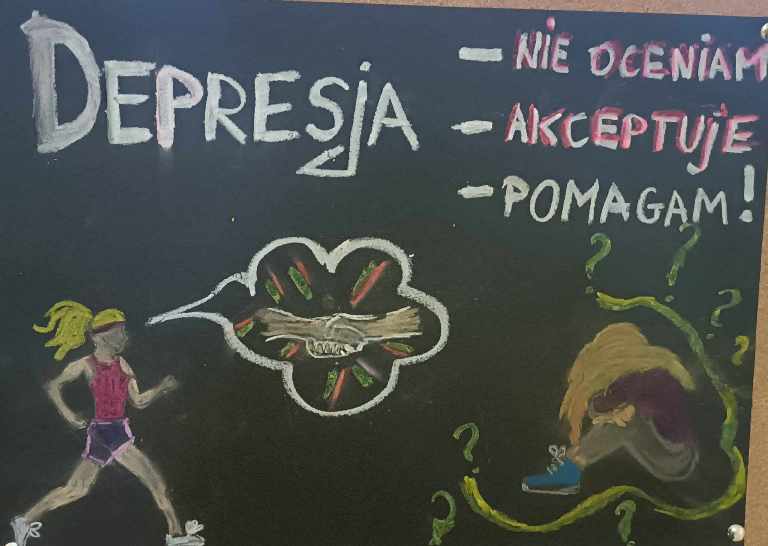 DEPRESJA
- NIE OCENIAM
- AKCEPTUJE
- POMAGAM!
? ? ? ?
?
? ?